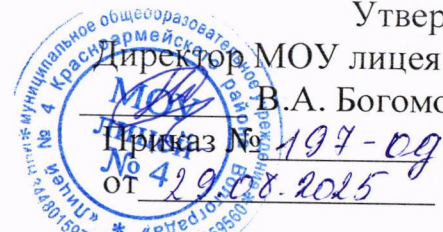 Утвер
Директор МОУ лицея
В.А. Богомо
Приказ № 197-од
от 29.08.2025
муниципальное общеобразовательное учреждение
«Лицей № 4 Красноармейского района Волгограда»
МОУ
лицей
№ 4